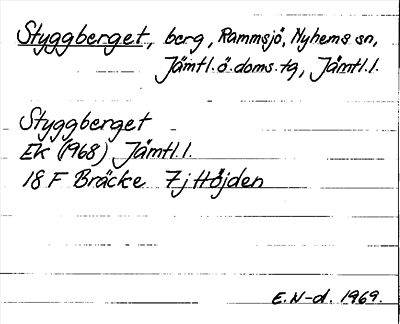 Styggberget, berg, Rammsjö, Nyhems sn,
Jämtl.ö.doms.tg, Jämtl.l.
Styggberget
Ek (1968) Jämtl.l.
18 F Bräcke 7j Höjden
E.N-d. 1969.